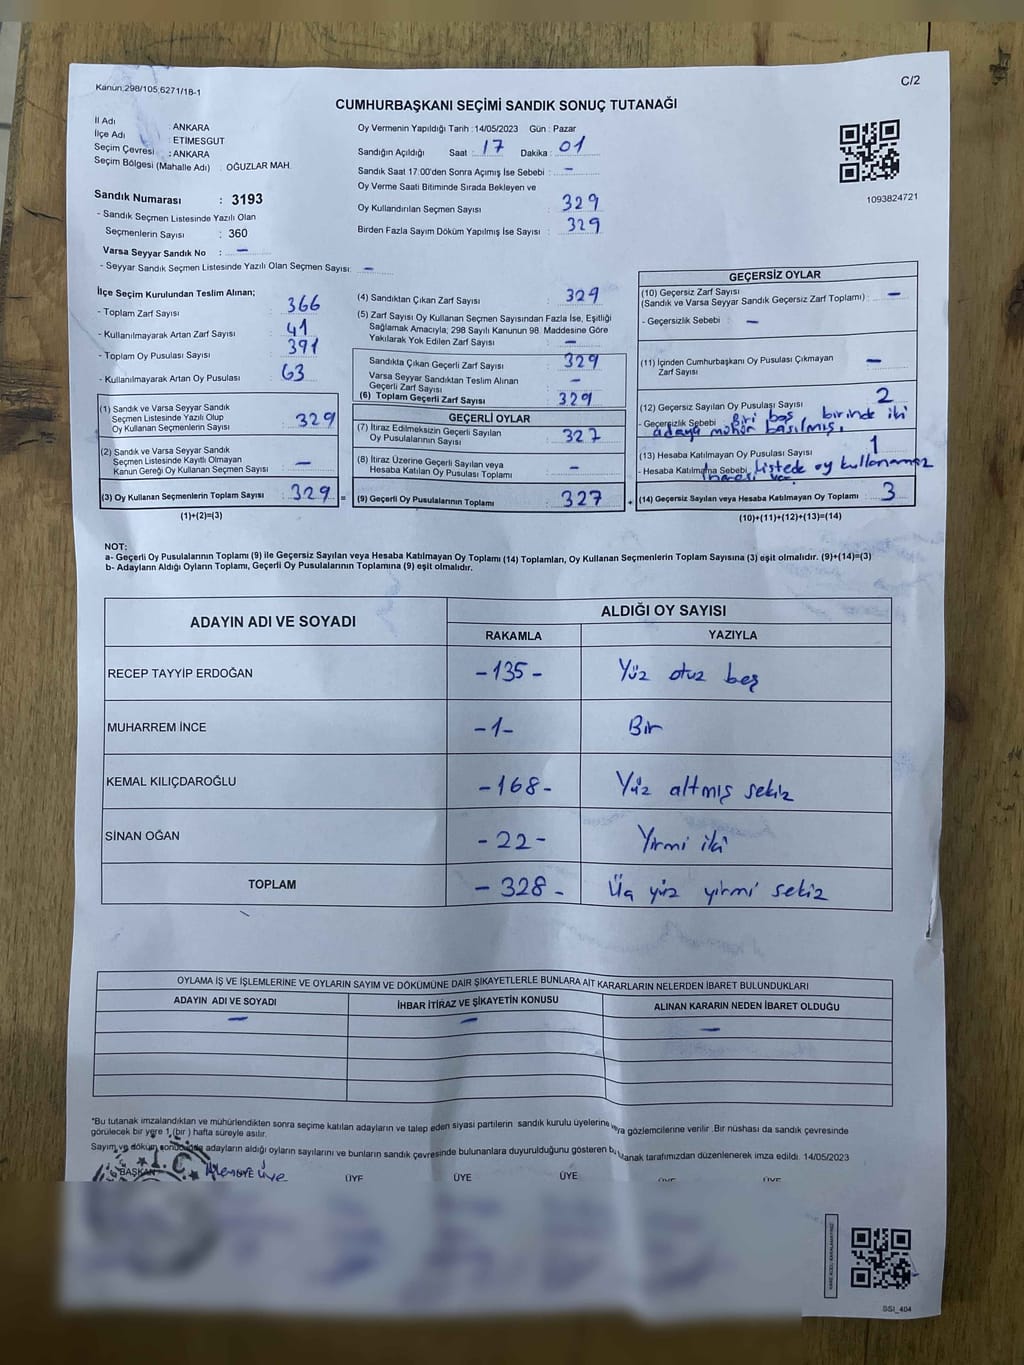 C/2
Kanun.298/105,6271/18-1
CUMHURBAŞKANI SEÇİMİ SANDIK SONUÇ TUTANAĞI
İl Adı : ANKARA
İlçe Adı : ETİMESGUT
Seçim Çevresi : ANKARA
Seçim Bölgesi (Mahalle Adı) : OĞUZLAR MAH.
Sandık Numarası : 3193
- Sandık Seçmen Listesinde Yazılı Olan
Seçmenlerin Sayısı : 360
Varsa Seyyar Sandık No : -
- Seyyar Sandık Seçmen Listesinde Yazılı Olan Seçmen Sayısı: -
Oy Vermenin Yapıldığı Tarih : 14/05/2023 Gün : Pazar
Sandığın Açıldığı Saat : 17 Dakika : 01
Sandık Saat 17.00'den Sonra Açımış İse Sebebi : -
Oy Verme Saati Bitiminde Sırada Bekleyen ve
Oy Kullandırılan Seçmen Sayısı : 329
Birden Fazla Sayım Döküm Yapılmış İse Sayısı : 329
1093824721
İlçe Seçim Kurulundan Teslim Alınan;
- Toplam Zarf Sayısı : 366
- Kullanılmayarak Artan Zarf Sayısı : 41
- Toplam Oy Pusulası Sayısı : 391
- Kullanılmayarak Artan Oy Pusulası : 63
(1) Sandık ve Varsa Seyyar Sandık
Seçmen Listesinde Yazılı Olup
Oy Kullanan Seçmenlerin Sayısı : 329
(2) Sandık ve Varsa Seyyar Sandık
Seçmen Listesinde Kayıtlı Olmayan
Kanun Gereği Oy Kullanan Seçmen Sayısı : -
(3) Oy Kullanan Seçmenlerin Toplam Sayısı : 329 =
(1)+(2)=(3)
(4) Sandıktan Çıkan Zarf Sayısı : 329
(5) Zarf Sayısı Oy Kullanan Seçmen Sayısından Fazla İse, Eşitliği
Sağlamak Amacıyla; 298 Sayılı Kanunun 98. Maddesine Göre
Yakılarak Yok Edilen Zarf Sayısı : -
Sandıkta Çıkan Geçerli Zarf Sayısı : 329
Varsa Seyyar Sandıktan Teslim Alınan
Geçerli Zarf Sayısı : -
(6) Toplam Geçerli Zarf Sayısı : 329
GEÇERLİ OYLAR
(7) İtiraz Edilmeksizin Geçerli Sayılan
Oy Pusulalarının Sayısı : 327
(8) İtiraz Üzerine Geçerli Sayılan veya
Hesaba Katılan Oy Pusulası Toplamı : -
(9) Geçerli Oy Pusulalarının Toplamı : 327 +
GEÇERSİZ OYLAR
(10) Geçersiz Zarf Sayısı
(Sandık ve Varsa Seyyar Sandık Geçersiz Zarf Toplamı) : -
- Geçersizlik Sebebi : -
(11) İçinden Cumhurbaşkanı Oy Pusulası Çıkmayan
Zarf Sayısı : -
(12) Geçersiz Sayılan Oy Pusulası Sayısı : 2
- Geçersizlik Sebebi : Biri boş, birinde iki
adaya mühür basılmış.
(13) Hesaba Katılmayan Oy Pusulası Sayısı : 1
- Hesaba Katılmama Sebebi : Listede oy kullanamaz
ibaresi var.
(14) Geçersiz Sayılan veya Hesaba Katılmayan Oy Toplamı : 3
(10)+(11)+(12)+(13)=(14)
NOT:
a- Geçerli Oy Pusulalarının Toplamı (9) ile Geçersiz Sayılan veya Hesaba Katılmayan Oy Toplamı (14) Toplamları, Oy Kullanan Seçmenlerin Toplam Sayısına (3) eşit olmalıdır. (9)+(14)=(3)
b- Adayların Aldığı Oyların Toplamı, Geçerli Oy Pusulalarının Toplamına (9) eşit olmalıdır.
ADAYIN ADI VE SOYADI ALDIĞI OY SAYISI
RAKAMLA YAZIYLA
RECEP TAYYİP ERDOĞAN -135- Yüz otuz beş
MUHARREM İNCE -1- Bir
KEMAL KILIÇDAROĞLU -168- Yüz altmış sekiz
SİNAN OĞAN -22- Yirmi iki
TOPLAM -328- Üç yüz yirmi sekiz
OYLAMA İŞ VE İŞLEMLERİNE VE OYLARIN SAYIM VE DÖKÜMÜNE DAİR ŞİKAYETLERLE BUNLARA AİT KARARLARIN NELERDEN İBARET BULUNDUKLARI
ADAYIN ADI VE SOYADI İHBAR İTİRAZ VE ŞİKAYETİN KONUSU ALINAN KARARIN NEDEN İBARET OLDUĞU
- - -
*Bu tutanak imzalandıktan ve mühürlendikten sonra seçime katılan adayların ve talep eden siyasi partilerin sandık kurulu üyelerine veya gözlemcilerine verilir .Bir nüshası da sandık çevresinde
görülecek bir yere 1 (bir ) hafta süreyle asılır.
Sayım ve döküm sonucunda adayların aldığı oyların sayılarını ve bunların sandık çevresinde bulunanlara duyurulduğunu gösteren bu tutanak tarafımızdan düzenlenerek imza edildi. 14/05/2023
T.C.
BAŞKAN Memur Üye ÜYE ÜYE ÜYE ÜYE ÜYE
SSI_404